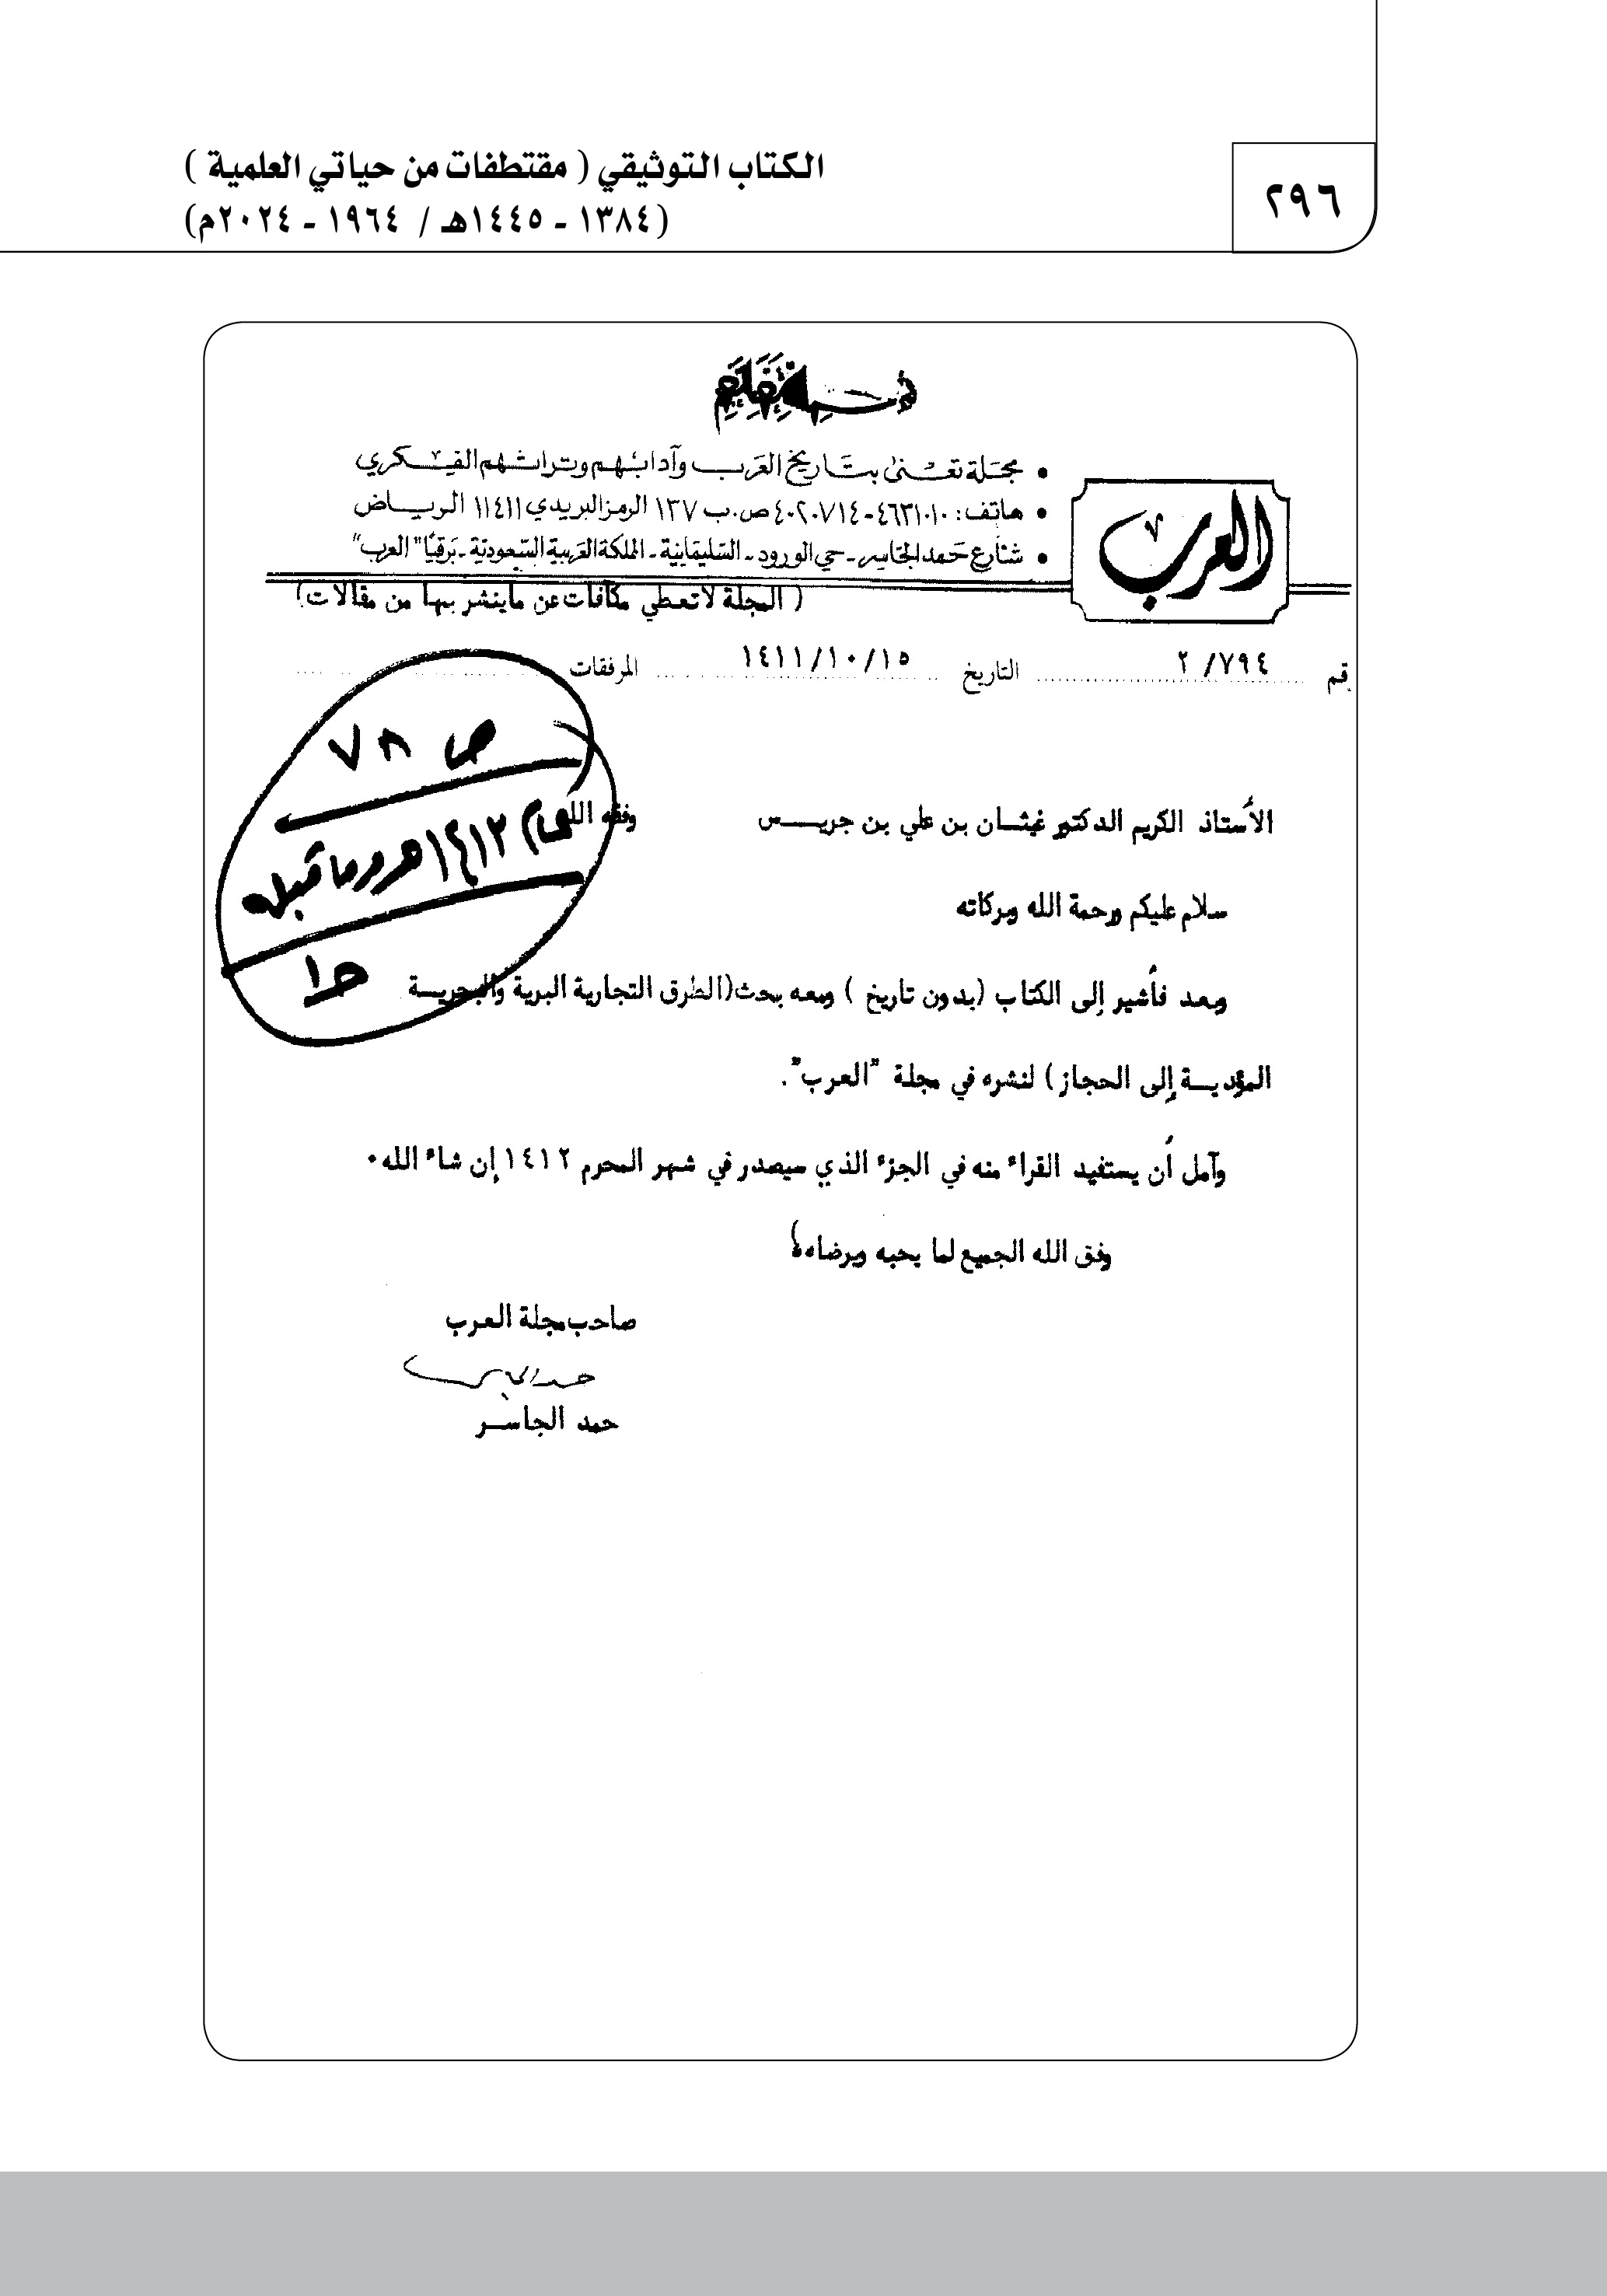 ٢٩٦
الكتاب التوثيقي ( مقتطفات من حياتي العلمية )
(١٣٨٤ - ١٤٤٥هـ / ١٩٦٤ - ٢٠٢٤م)
العرب
• مجلة تعنى بتاريخ العرب وآدابهم وتراثهم الفكري
• هاتف: ٤٦٣١٠١٠ - ٤٠٢٠٧١٤ ص.ب ١٣٧ الرمز البريدي ١١٤١١ الرياض
• شارع حمد الجاسر - حي الورود - السليمانية - المملكة العربية السعودية - برقيًا "العرب"
( المجلة لاتعطي مكافات عن ماينشر بها من مقالات)
رقم ٢/٧٩٤ التاريخ ١٤١١/١٠/١٥ المرفقات
ص ٧٨
عام ١٤١٢هـ وما قبله
الأستاذ الكريم الدكتور غيثان بن علي بن جريس وفقه الله
سلام عليكم ورحمة الله وبركاته
وبعد فأشير إلى الكتاب (بدون تاريخ ) ومعه بحث(الطرق التجارية البرية والبحرية
المؤدية إلى الحجاز) لنشره في مجلة "العرب".
وآمل أن يستفيد القراء منه في الجزء الذي سيصدر في شهر المحرم ١٤١٢ إن شاء الله٠
وفق الله الجميع لما يحبه ويرضاه
صاحب مجلة العرب
حمد الجاسر
حمد الجاسر